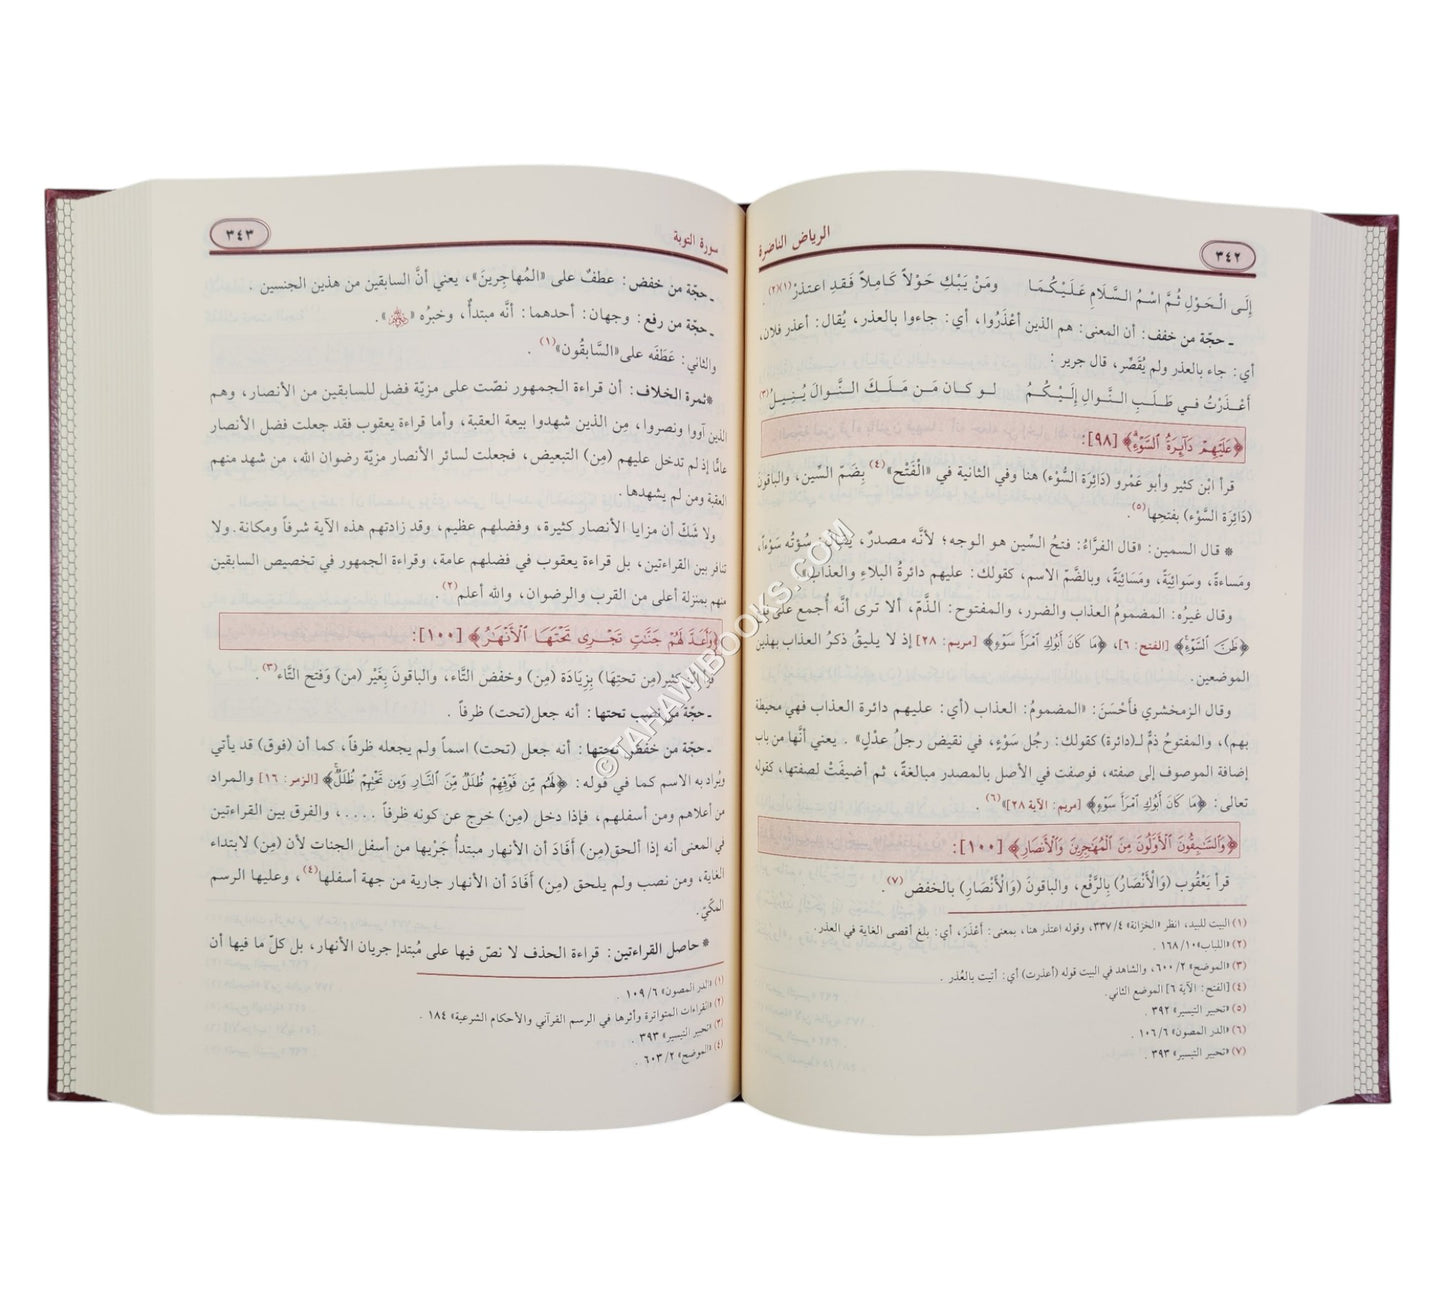 ٣٤٢
الرياض الناضرة
إلَى الْحَوْلِ ثُمَّ اسْمُ السَّلَامِ عَلَيْكُمَا ومَنْ يَبْكِ حَوْلاً كَامِلاً فَقدِ اعتذرْ(١)(٢) .
ـ حجّة من خفف: أن المعنى: هم الذين أعْذَرُوا، أي: جاءوا بالعذر، يُقال: أعذر فلان،
أي: جاء بالعذر ولم يُقَصِّر، قال جرير :
أَعْذَرْتُ في طَلَبِ النَّوالِ إلَيْكُمُ لو كان مَن مَلَكَ النَّوالَ يُنِيلُ(٣)
﴿عَلَيْهِمْ دَآئِرَةُ ٱلسَّوْءِ﴾ [٩٨]:
قرأ ابْن كثير وأبو عَمْرو (دَائِرَة السُّوْء) هنا وفي الثانية في «الْفَتْح»(٤) بِضَمّ السِّين، والباقون
(دَائِرَة السَّوْء) بفتحها(٥).
* قال السمين: «قال الفرَّاءُ: فتحُ السِّين هو الوجه؛ لأنَّه مصدرٌ، يُقال: سُؤتُه سَوْءاً،
ومَساءةً، وسَوائِيَّةً، ومَسَائِيَّةً، وبالضَّمّ الاسم، كقولك: عليهم دائرةُ البلاءِ والعذاب».
وقال غيرُه: المضمومُ العذاب والضرر، والمفتوح: الذَّمّ، ألا ترى أنَّه أُجمع على
﴿ظَنَّ ٱلسَّوْءِ﴾ [الفتح: ٦]، ﴿مَا كَانَ أَبُوكِ ٱمْرَأَ سَوْءٍ﴾ [مريم: ٢٨] إذ لا يليقُ ذكرُ العذاب بهذين
الموضعين.
وقال الزمخشري فأَحْسَنَ: «المضمومُ: العذاب (أي: عليهم دائرة العذاب فهي محيطة
بهم)، والمفتوحُ ذمٌّ لـ(دائرة) كقولك: رجُل سَوْءٍ، في نقيض رجلُ عدْلٍ» . يعني أنَّها من باب
إضافة الموصوف إلى صفته، فوصفت في الأصل بالمصدر مبالغةً، ثم أضيفَتْ لصفتها، كقوله
تعالى: ﴿مَا كَانَ أَبُوكِ ٱمْرَأَ سَوْءٍ﴾ [مريم: الآية ٢٨]»(٦) .
﴿وَٱلسَّٰبِقُونَ ٱلْأَوَّلُونَ مِنَ ٱلْمُهَٰجِرِينَ وَٱلْأَنصَارِ﴾ [١٠٠]:
قرأ يَعْقُوب (وَالْأَنْصَارُ) بِالرَّفْع، والباقونَ (وَالْأَنْصَارِ) بالخفض(٧).
(١) البيت للبيد، انظر «الخزانة» ٣٣٧/٤، وقوله اعتذر هنا، بمعنى: أَعْذَرَ، أي: بلغ أقصى الغاية في العذر.
(٢) «اللباب» ١٦٨/١٠ .
(٣) «الموضح» ٦٠٠/٢، والشاهد في البيت قوله (أعذرت) أي: أتيت بالعُذر .
(٤) [الفتح: الآية ٦] الموضع الثاني.
(٥) «تحبير التيسير» ٣٩٢ .
(٦) «الدر المصون» ١٠٦/٦ .
(٧) «تحبير التيسير» ٣٩٣ .
سورة التوبة
٣٤٣
ـ حجّة من خفض: عطفٌ على «المُهاجِرِينَ»، يعني أنَّ السابقين من هذين الجنسين .
ـ حجّة من رفع: وجهان: أحدهما: أنَّه مبتدأٌ، وخبرُه
والثاني: عَطَفَه على«السَّابقُون»(١) .
*ثمرة الخلاف: أن قراءة الجمهور نصّت على مزيّة فضل للسابقين من الأنصار، وهم
الذين آووا ونصروا، مِن الذين شهدوا بيعة العقبة، وأما قراءة يعقوب فقد جعلت فضل الأنصار
عامًّا إذ لم تدخل عليهم (مِن) التبعيض، فجعلت لسائر الأنصار مزيّة رضوان الله، من شهد منهم
العقبة ومن لم يشهدها.
ولا شَكّ أن مزايا الأنصار كثيرة، وفضلهم عظيم، وقد زادتهم هذه الآية شرفاً ومكانة. ولا
تنافر بين القراءتين، بل قراءة يعقوب في فضلهم عامة، وقراءة الجمهور في تخصيص السابقين
منهم بمنزلة أعلى من القرب والرضوان، والله أعلم(٢) .
﴿وَأَعَدَّ لَهُمْ جَنَّٰتٍ تَجْرِى تَحْتَهَا ٱلْأَنْهَٰرُ﴾ [١٠٠]:
كثير(مِن تحتِهَا) بِزِيَادَة (مِن) وخفض التَّاء، والباقونَ بِغَيْر (من) وَفتح التَّاء(٣).
ـ حجّة من نصب تحتها: أنه جعل(تحت) ظرفاً .
ـ حجّة من خفض تحتها: أنه جعل (تحت) اسماً ولم يجعله ظرفاً، كما أن (فوق) قد يأتي
ويُراد به الاسم كما في قوله: ﴿لَهُم مِّن فَوْقِهِمْ ظُلَلٌ مِّنَ ٱلنَّارِ وَمِن تَحْتِهِمْ ظُلَلٌ﴾ [الزمر: ١٦] والمراد
من أعلاهم ومن أسفلهم، فإذا دخل (مِن) خرج عن كونه ظرفاً . . . .، والفرق بين القراءتين
في المعنى أنه إذا ألحق(مِن) أَفَادَ أن الأنهار مبتدأُ جَرْيها من أسفل الجنات لأن (مِن) لابتداء
الغاية، ومن نصب ولم يلحق (مِن) أَفَادَ أن الأنهار جارية من جهة أسفلها(٤)، وعليها الرسم
المكّيّ.
* حاصل القراءتين: قراءة الحذف لا نصّ فيها على مُبتدإ جريان الأنهار، بل كلّ ما فيها أن
(١) «الدر المصون» ١٠٩/٦ .
(٢) «القراءات المتواترة وأثرها في الرسم القرآني والأحكام الشرعية» ١٨٤ .
(٣) «تحبير التيسير» ٣٩٣ .
(٤) «الموضح» ٦٠٣/٢ .
© TAHAWIBOOKS.COM